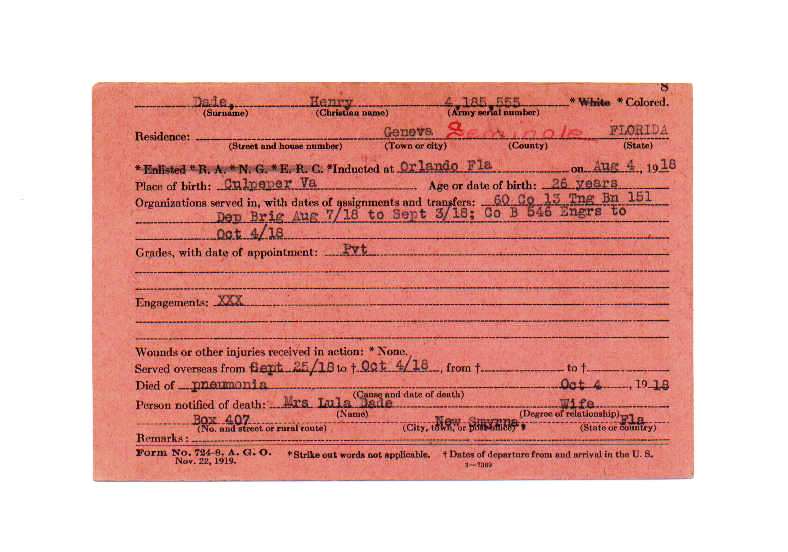 8
Dade, Henry 4,185,555 * White * Colored.
(Surname) (Christian name) (Army serial number)
Residence: Geneva Seminole FLORIDA
(Street and house number) (Town or city) (County) (State)
* Enlisted * R. A. * N. G. * E. R. C. * Inducted at Orlando Fla on Aug 4, 1918
Place of birth: Culpeper Va Age or date of birth: 26 years
Organizations served in, with dates of assignments and transfers: 60 Co 13 Tng Bn 151
Dep Brig Aug 7/18 to Sept 3/18; Co B 546 Engrs to
Oct 4/18
Grades, with date of appointment: Pvt
Engagements: XXX
Wounds or other injuries received in action: * None.
Served overseas from † Sept 25/18 to † Oct 4/18, from † to †
Died of pneumonia Oct 4, 1918
(Cause and date of death)
Person notified of death: Mrs Lula Dade Wife
(Name) (Degree of relationship)
Box 407 New Smyrna, Fla
(No. and street or rural route) (City, town, or post office) (State or country)
Remarks:
Form No. 724-8, A. G. O. * Strike out words not applicable. † Dates of departure from and arrival in the U. S.
Nov. 22, 1919. 3—7369